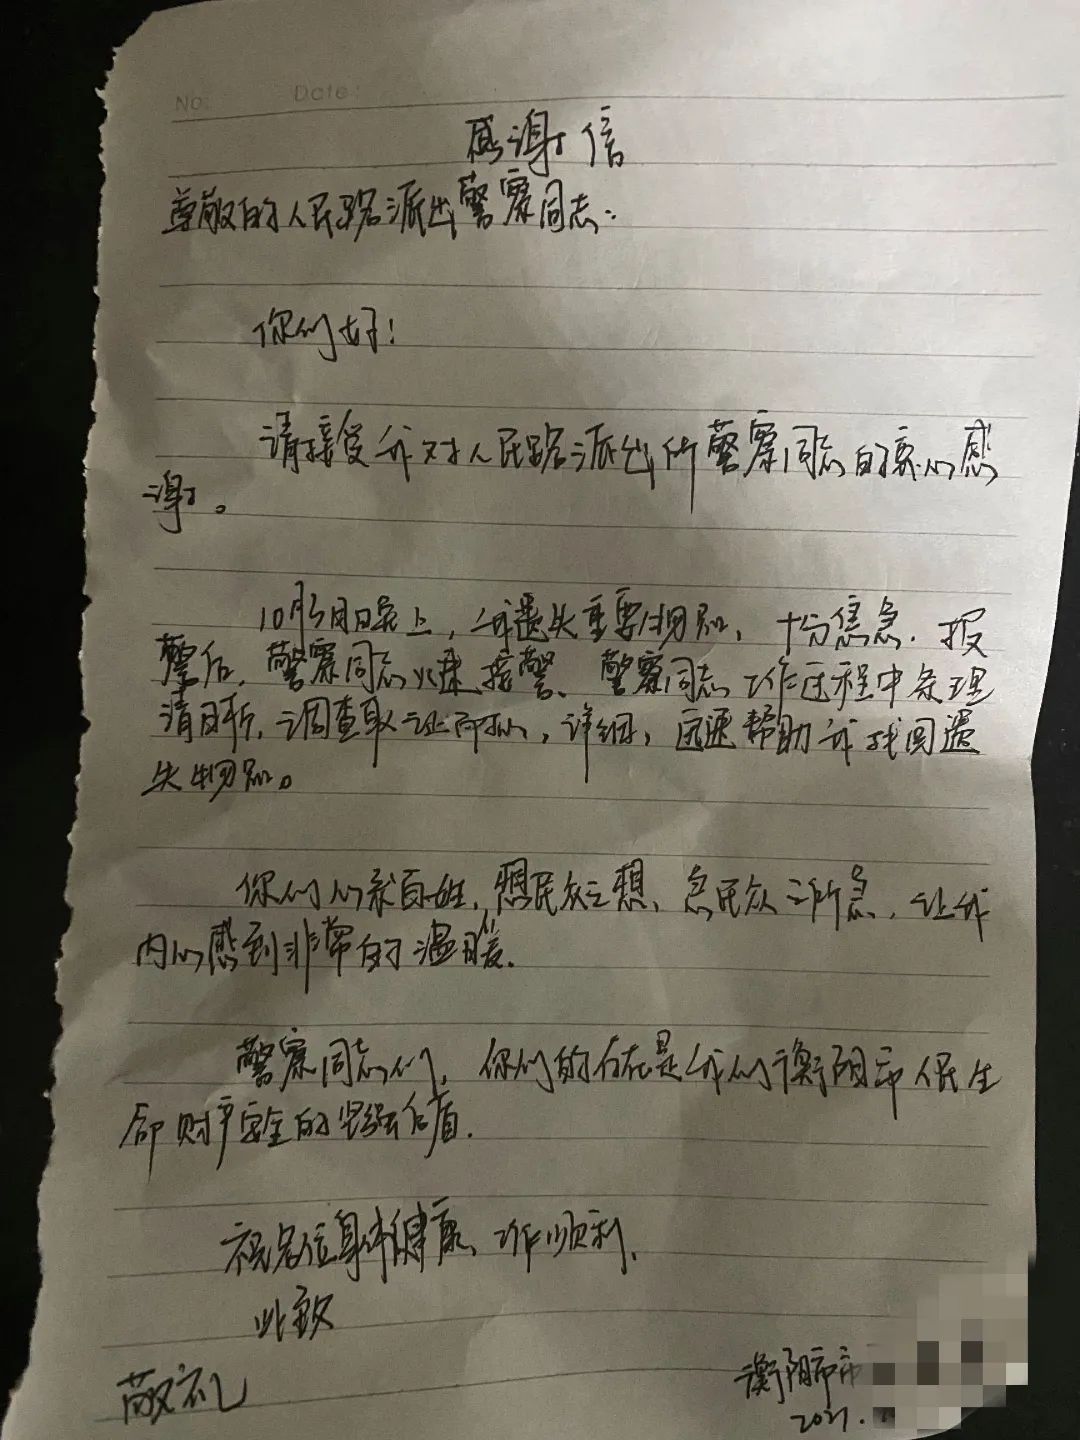 No:    Date:
感谢信
尊敬的人民路派出警察同志:
你们好!
请接受我对人民路派出所警察同志的衷心感
谢。
10月 日晚上,我遗失重要物品,十分焦急.报
警后,警察同志火速接警、警察同志工作过程中条理
清晰,调查取证 ,详细,迅速帮助我找回遗
失物品。
你们心系百姓,想民众之想,急民众之所急,让我
内心感到非常的温暖.
警察同志们,你们的存在是我们衡阳市人民生
命财产安全的坚强后盾.
祝各位身体健康、工作顺利.
此致
敬礼
衡阳市市
2021.